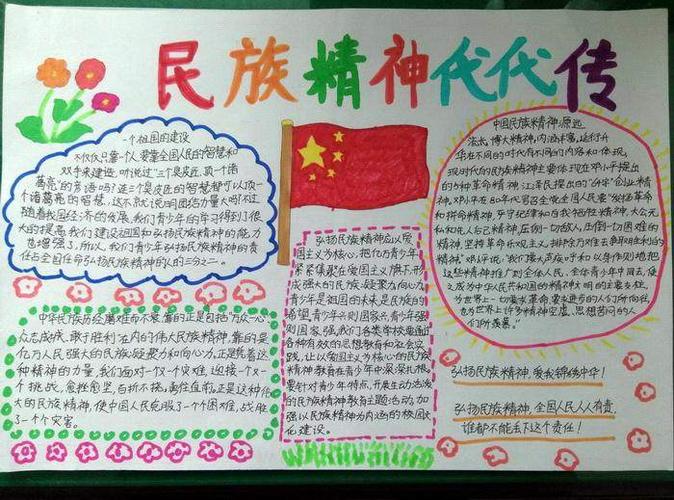 民族精神代代传
一个祖国的建设
不仅仅只靠一个人,要靠全国人民的智慧和
双手来建造,听说过"三个臭皮匠,顶一个诸
葛亮"的旁语吗?连三个臭皮匠的智慧都可以顶一
个诸葛亮的智慧,这不就说明团结力量大吗?不过
随着我国经济的发展,我们青少年的学习得到了很
大的提高,我们建设祖国和弘扬民族精神的能力
也增强了,所以,我们青少年弘扬民族精神的责
任占全国任命弘扬民族精神的人的三分之二。
中华民族历经磨难而不衰,靠的正是包括"万众一心
众志成城,敢于胜利"在内的伟大民族精神,靠的是
亿万人民强大的民族凝聚力和向心力,正是凭着这
种精神的力量,我们面对一次一个灾难,迎接一次一
个挑战,愈挫愈坚,百折不挠,勇往直前,正是这种伟
大的民族精神,使中国人民克服了一个个困难,战胜
了一个个灾害。
弘扬民族精神应以爱
国主义为核心,把亿万青少年
紧紧集聚在爱国主义旗下,形
成强大的民族凝聚力向心力
青少年是祖国的未来,是民族的
希望,青少年兴则国家兴,青少年强
则国家强,我们各类学校要通过
各种有效的思想教育和社会实
践,让以爱国主义为核心的民族
精神教育在青少年中深深扎根,
要针对青少年特点,开展生动活泼
的民族精神教育主题活动,加
强以民族精神为内涵的校园文
化建设。
中国民族精神源远
流长,博大精深,内涵丰富,延行升
华在不同的时代有不同的内容和体现,
现时代的民族精神主要体现在邓小平提出
的5种革命精神,江泽民提出的"64字"创业精
神,邓小平在80年代号召全党全国人民要"发扬革命
和拼命精神,严守纪律和自我牺牲精神,大公无
私和先人后己精神,压倒一切敌人,压倒一切困难的
精神,坚持革命乐观主义,排除万难去争取胜利的
精神"邓评说:"我们要大声疾呼和以身作则地把
这些精神推广到全体人民,全体青少年中间去,使
之成为中华人民共和国的精神文明的主要支柱,
为世界上一切要求革命,要求进步的人们所向往,
也为世界上许多精神空虚,思想苦闷的人
们所羡慕。"
弘扬民族精神,爱我锦绣中华!
弘扬民族精神,全国人民人人有责,
谁都不能丢下这个责任!